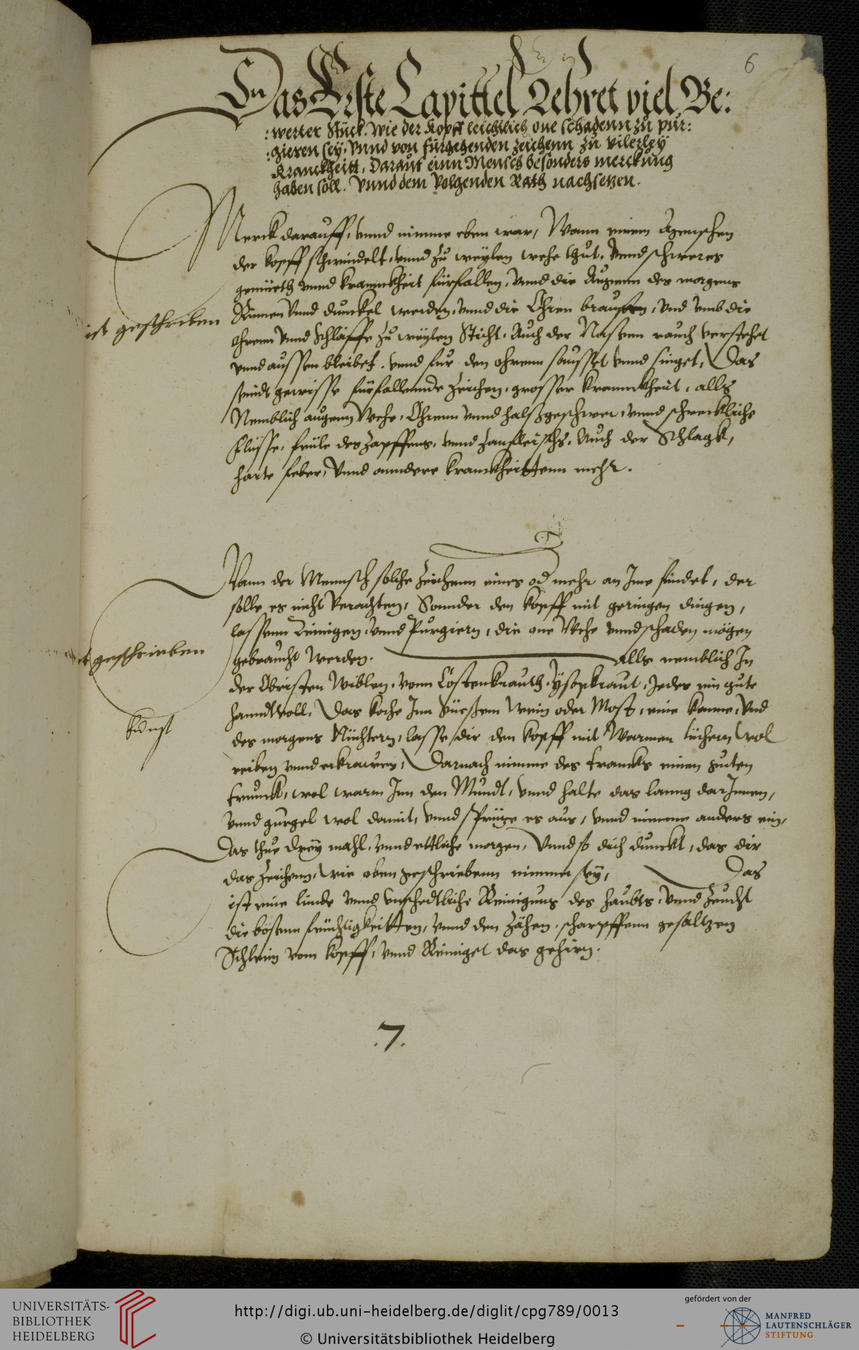 6
Das Erste Capittel Lehret viel Be:
:werter Stück. Wie der Kopff leichtlich one schadenn zu pur:
:gieren sey, Vnnd von fürgehenden zeichenn zu vilerley
Kranckheitt, Daraus einn Mensch besonders merckung
haben soll. Vnnd dem Volgenden Rath nachsetzen.
Merck darauff, vnnd nimme eben war, Wann einem Menschen
der Kopff schwindelt, vnnd zu weylen wehe thut, vnnd schweres
gemüeth vnnd kranckheit fürfallen, vnnd die Augenn des morgens
Rinnen vnnd dunckel werden, vnnd die Ohren brausten, vnd vmb die
ist geschriben
ohrenn vnnd Schläffe zu weylen Sticht, Auch der Nasenn rauch verstehet
vnnd aussen bleibet. vnnd für den ohrenn sausset vnnd singet, Das
seindt gewisse fürfallennde zeichen, grosser kranckheit, alls
Nemblich augenn Wehe, Ohrenn vnnd halsgeschwer, vnnd schreckliche
Flüsse, feüle des Zapffens, vnnd Zanfleischs, Auch der Schlagk,
harte feber, Vnnd anndere kranckheittenn mehr.
Wann der Mennsch solche zeichenn eines od mehr an Ime findet, der
solle es nicht Verachten, Sonnder den Kopff mit geringen dingen,
lassenn Reinigen, vnnd Purgiern, die one Wehe vnnd schaden mögen
geschrieben
gebraucht werden. Alls nemblich In
der Obristen Wiblen, vonn Costenkrauth, Ysopkraut, Jedes ein gute
hanndtvoll, Das koche Inn Süessem Wein oder Most, eine kanne, Vnd
kunst
des morgens Nüchtern, lasse dir den kopff mit Warmen tüchern wol
reiben vnnd erkrawen, Darnach nimme des trancks einen guten
trunck, wol warm Inn den Mundt, vnnd halte das lanng darInnen,
vnnd gurgel wol damit, vnnd sprütze es aus, vnnd nimme anders ein,
Das thue drey mahl, vnnd ettliche morgen, Vnnd so dich dunckt, das dir
das zeichenn, wie oben geschriebenn nimmer sey, Das
ist eine linde vnnd vnschedtliche Reinigung des haubts, vnnd Zeucht
die bösenn feüchtigkeitten, vnnd den Zähen, scharpffenn gesaltzen
Schleim vom kopff, vnnd Reiniget das gehirn.
.7.
UNIVERSITÄTS-
BIBLIOTHEK
HEIDELBERG
http://digi.ub.uni-heidelberg.de/diglit/cpg789/0013
© Universitätsbibliothek Heidelberg
gefördert von der
MANFRED
LAUTENSCHLÄGER
STIFTUNG